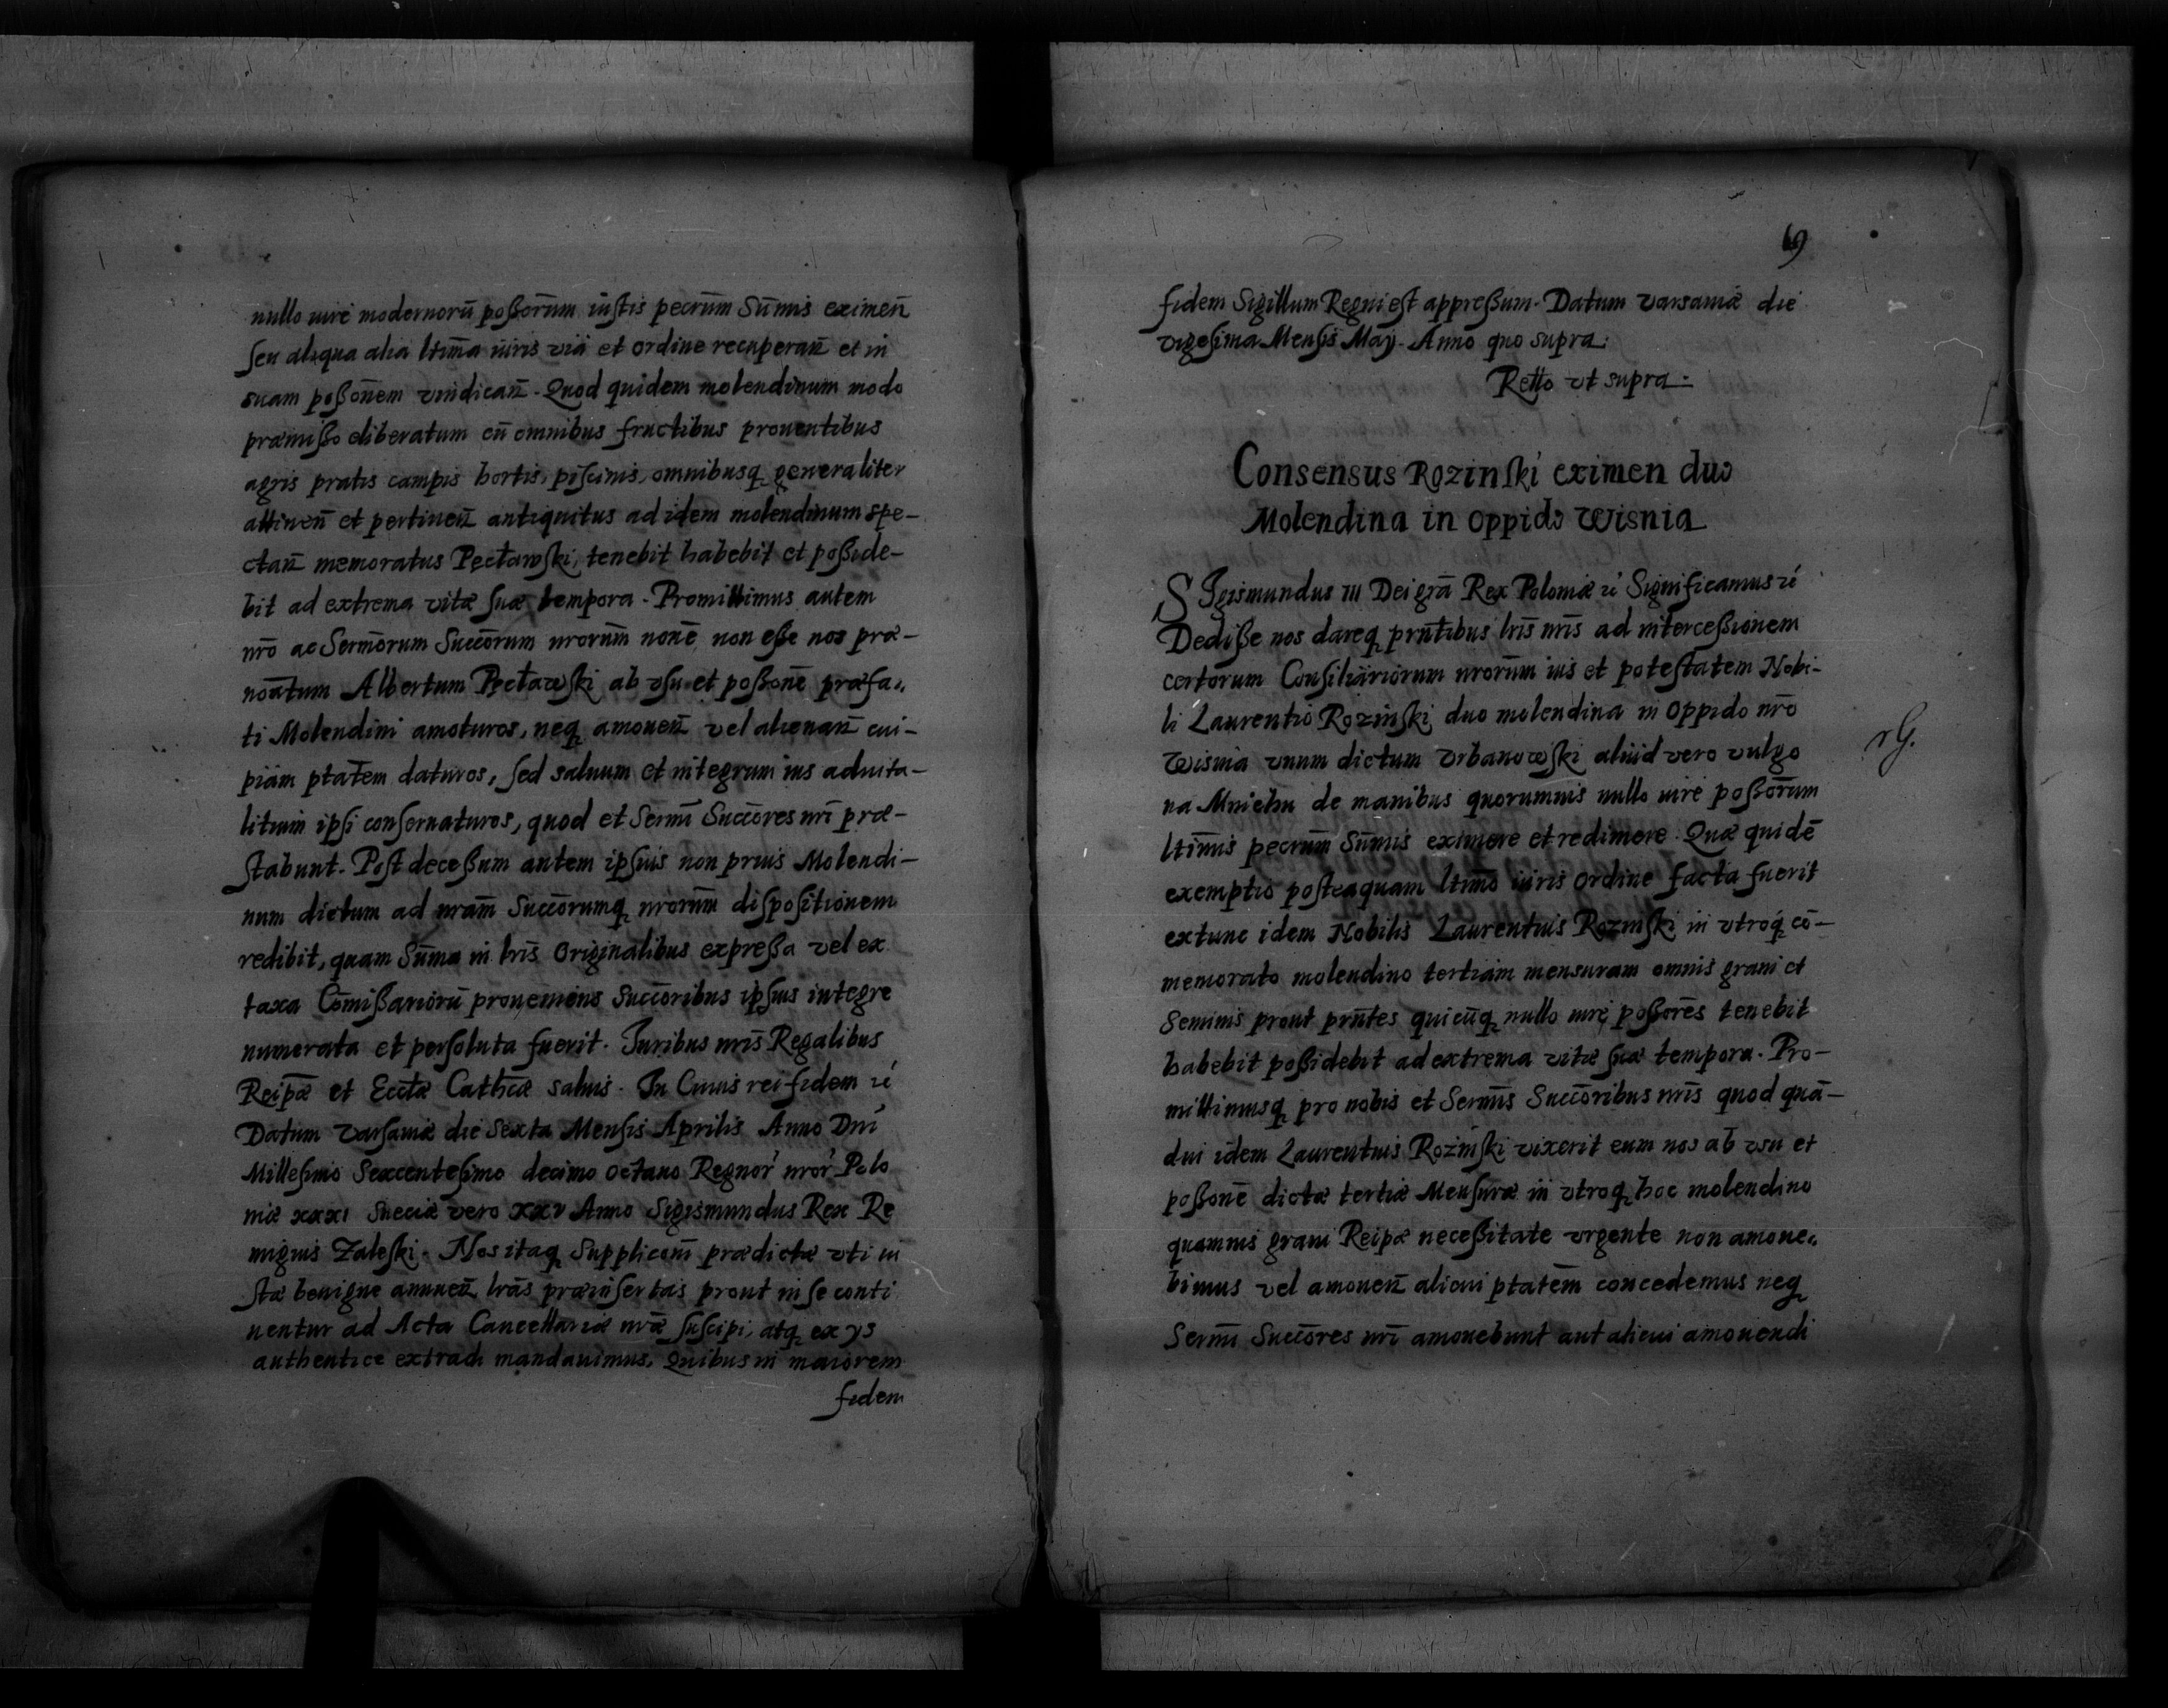 nullo iure modernorū poßorūm iustis pecrūm Sum̄is eximen̄
seu aliqua alia ltima iuris via et ordine recuperan̄ et in
suam poßonem vindican̄. Quod quidem molendinum modo
præmißo eliberatum cū omnibus fructibus prouentibus
agris pratis campis hortis, piscinis, omnibusq generaliter
attinen̄ et pertinen̄ antiquitus ad idem molendinum spe-
ctan̄ memoratus Pęctawski, tenebit habebit et poßide-
bit ad extrema vitæ suæ tempora. Promittimus autem
nr̄o ac Sermorum Succōrum nrorūm none, non eße nos præ-
noatum Albertum Pęctawski ab vsu et poßonē præfa-
ti Molendini amoturos, neq amouen̄ vel alienan̄ cui-
piam ptatem daturos, sed saluum et integrum ius aduita-
litium ipsi conseruaturos, quod et Sermī Succōres nrī præ-
stabunt. Post deceßum autem ipsius non prius Molendi-
num dictum ad nram̄ Succōrumq nrorūm dispositionem
redibit, quam Sum̄a in lris̄ Originalibus expreßa vel ex
taxa Com̄ißariorū proueniens Succōribus ipsius integre
numerata et persoluta fuerit. Iuribus nrīs Regalibus
Reipæ et Ecctæ Cathcæ saluis. In Cuius rei fidem rć
Datum Varsauiæ die Sexta Mensis Aprilis Anno Dnī
Millesimo Sexcentesimo decimo octauo Regnor nror Polo
niæ xxxi Sueciæ vero xxv Anno Sigismundus Rex Re
migius Zaleski. Nos itaq Suppliconi prædictæ vti iu
stæ benigne annuen̄ lrās præinsertas prout in se conti
nentur ad Acta Cancellariæ nræ suscipi, atq ex ys
authentice extradi mandauimus. Quibus in maiorem
fidem
69
fidem Sigillum Regni est appreßum. Datum Varsauiæ die
vigesima Mensis May. Anno quo supra.
Retto vt supra.
Consensus Rozinski eximen duo
Molendina in Oppido Wisnia
SIgismundus III Dei grā Rex Poloniæ rć Significamus rć
Dediße nos dareq prntibus lris̄ nrīs ad interceßionem
certorum Consiliariorum nrorūm ius et potestatem Nobi-
li Laurentio Rozinski duo molendina in Oppido nr̄o
Wisnia vnum dictum Vrbanowski aliud vero vulgo
na Mnichu de manibus quorumuis nullo iure poßorūm
ltimīs pecrūm Sum̄is eximere et redimere. Quæ quidē
exemptio posteaquam ltimo iuris ordine facta fuerit
extunc idem Nobilis Laurentius Rozinski in vtroq cō-
memorato molendino tertiam mensuram omnis grani et
Seminis prout prntes quicūq nullo iure poßores tenebit
habebit poßidebit ad extrema vitæ suæ tempora. Pro-
mittimusq pro nobis et Sermīs Succōribus nrīs quod quā-
diu idem Laurentius Rozinski vixerit eum nos ab vsu et
poßonē dictæ tertiæ Mensuræ in vtroq hoc molendino
quamuis graui Reipæ neceßitate vrgente non amoue-
bimus vel amouen̄ alicui ptatem̄ concedemus neq
Sermī Succōres nrī amouebunt aut alicui amouendi